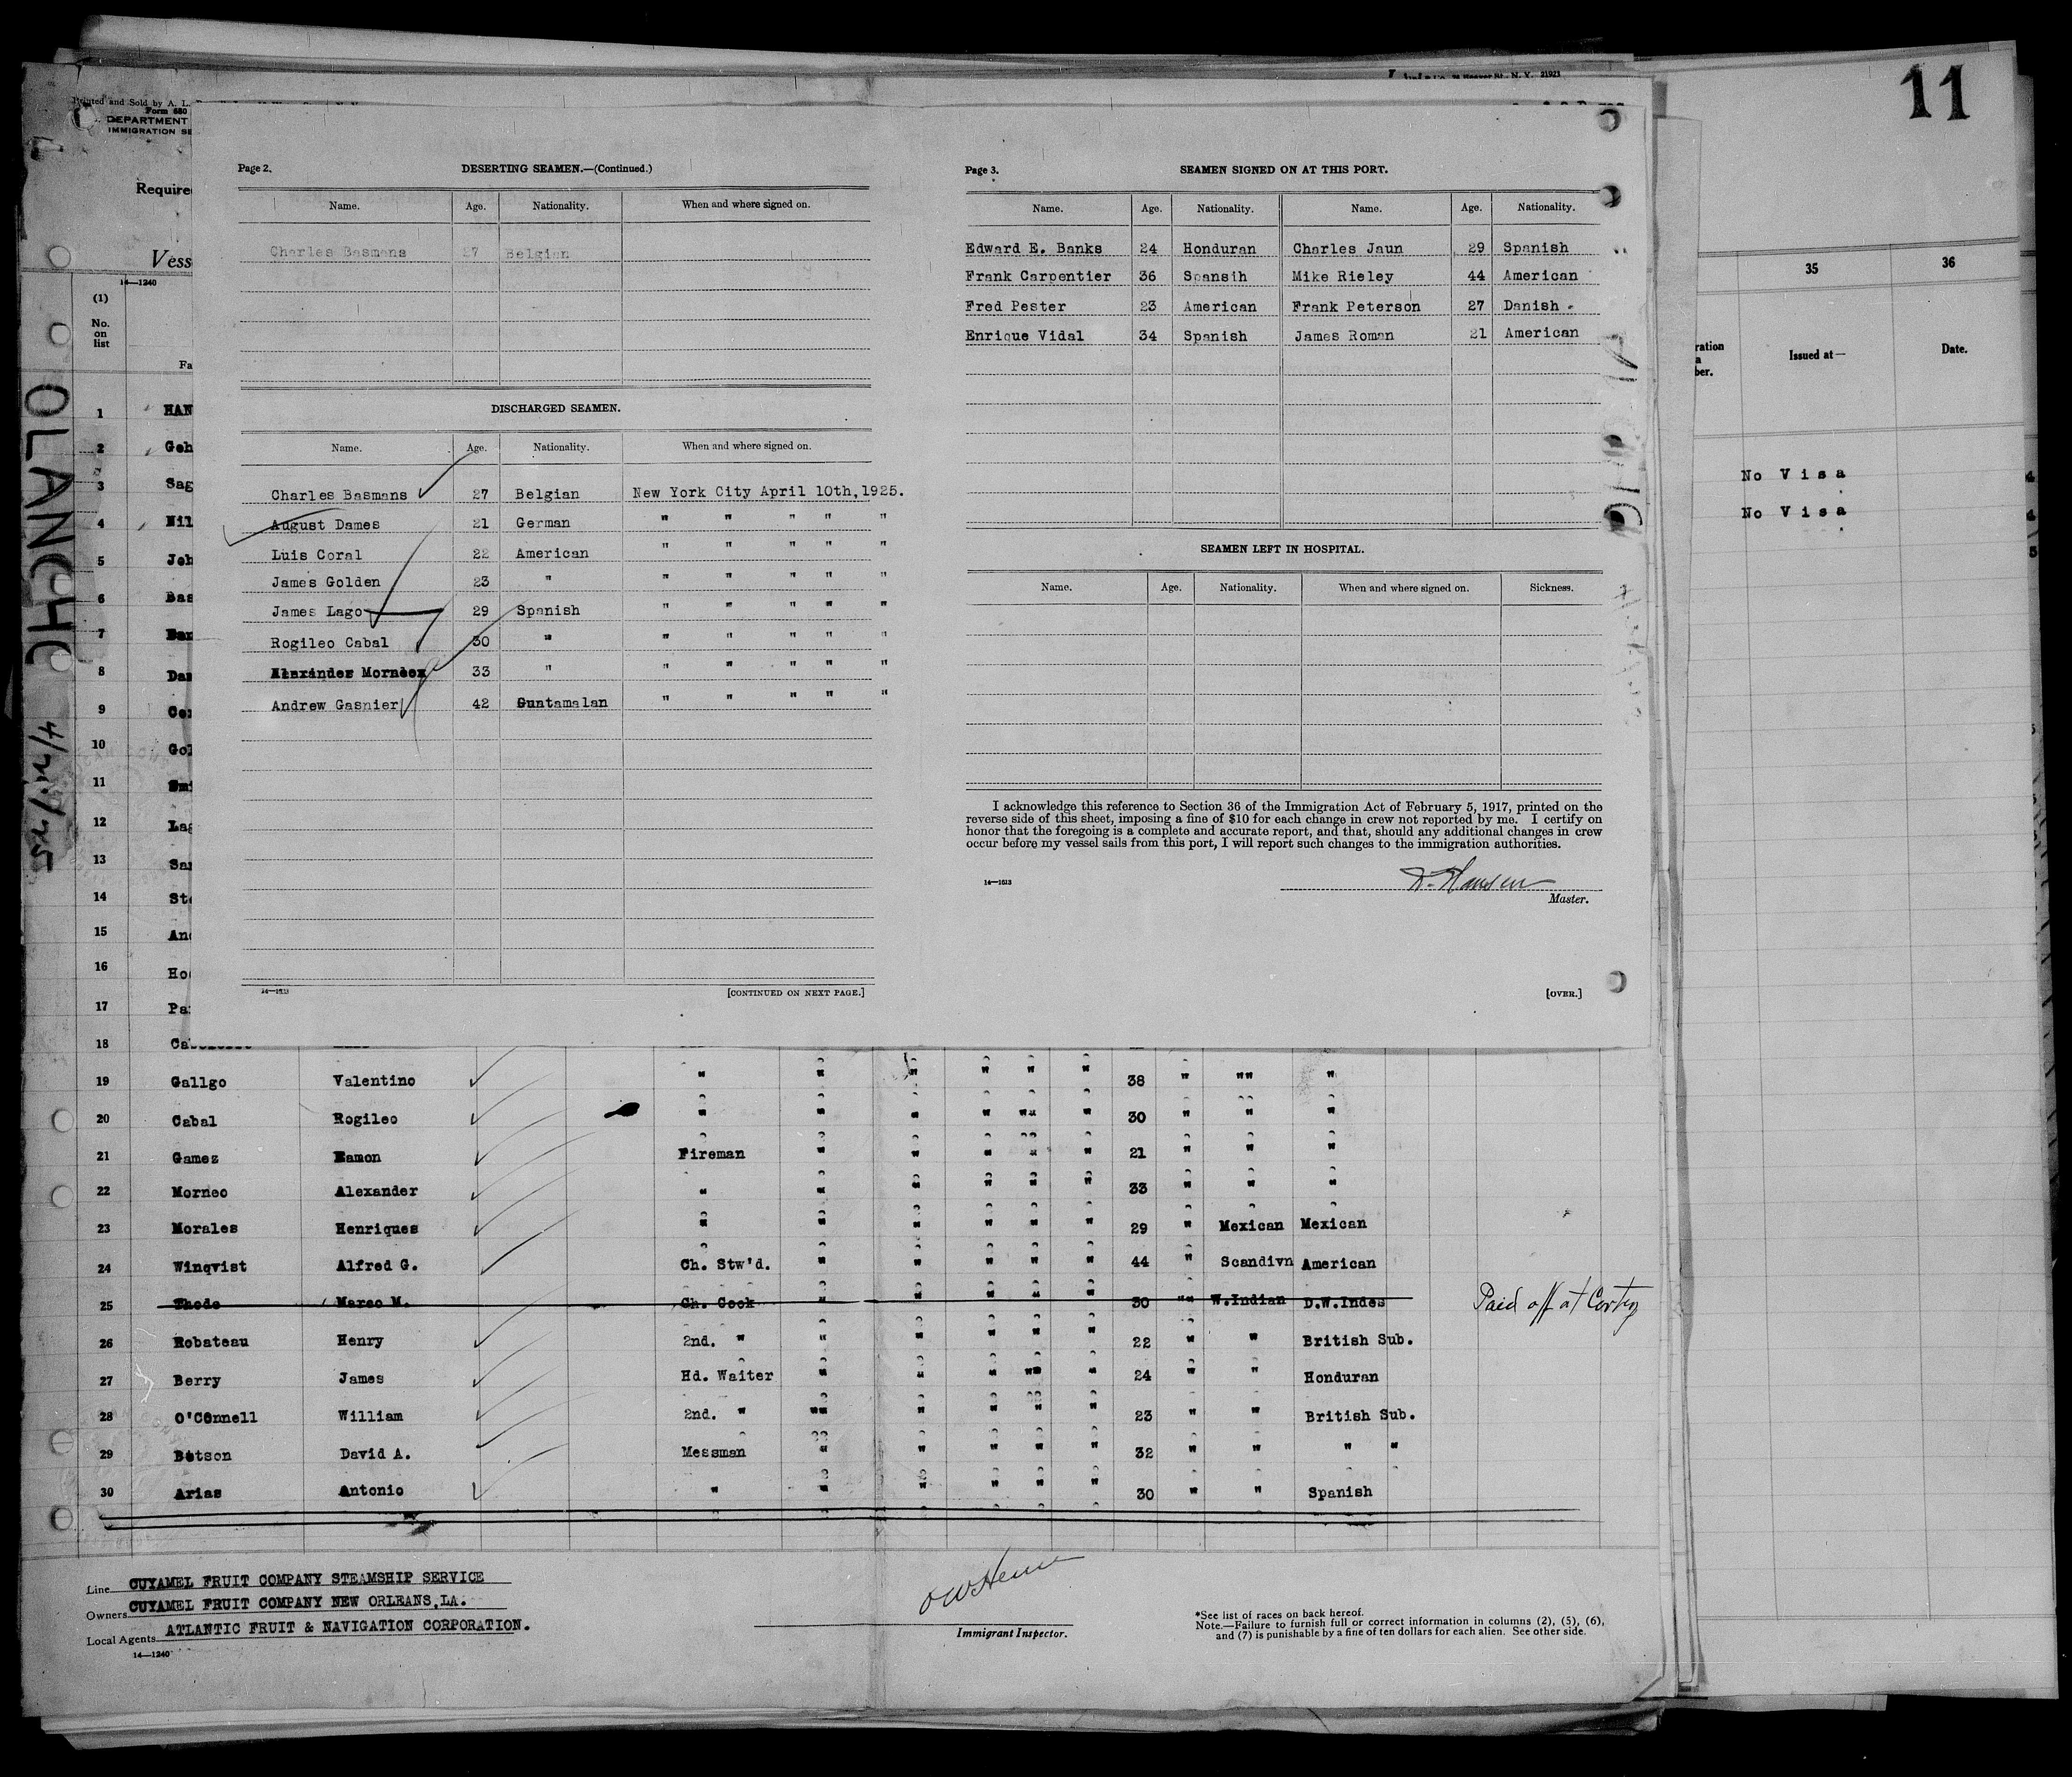 11
Printed and Sold by A. L.
Form 680
DEPARTMENT
IMMIGRATION SE
Required
Vess
14—1240
(1)
No.
on
list
Fa
OLANCHO 4/21/25
Page 2.
DESERTING SEAMEN.—(Continued.)
Name. Age. Nationality. When and where signed on.
Charles Basmans 27 Belgian
DISCHARGED SEAMEN.
Name. Age. Nationality. When and where signed on.
Charles Basmans 27 Belgian New York City April 10th,1925.
August Dames 21 German " " " " "
Luis Coral 22 American " " " " "
James Golden 23 " " " " " "
James Lago 29 Spanish " " " " "
Rogileo Cabal 30 " " " " " "
33 " " " " " "
Andrew Gasnier 42 Guntamalan " " " " "
14—1513
[CONTINUED ON NEXT PAGE.]
Page 3.
SEAMEN SIGNED ON AT THIS PORT.
Name. Age. Nationality. Name. Age. Nationality.
Edward E. Banks 24 Honduran Charles Jaun 29 Spanish
Frank Carpentier 36 Spansih Mike Rieley 44 American
Fred Pester 23 American Frank Peterson 27 Danish
Enrique Vidal 34 Spanish James Roman 21 American
SEAMEN LEFT IN HOSPITAL.
Name. Age. Nationality. When and where signed on. Sickness.
I acknowledge this reference to Section 36 of the Immigration Act of February 5, 1917, printed on the
reverse side of this sheet, imposing a fine of $10 for each change in crew not reported by me. I certify on
honor that the foregoing is a complete and accurate report, and that, should any additional changes in crew
occur before my vessel sails from this port, I will report such changes to the immigration authorities.
14—1513
Master.
[OVER.]
35 36
ration
a
ber.
Issued at—
Date.
No Visa
No Visa
1 HAN
2 Geh
3 Sag
4 Nil
5 Joh
6 Bas
7
8 Dam
9 Cor
10 Gol
11 Smi
12 Lag
13 San
14 Ste
15 And
16 Ho
17 Pa
18
19 Gallgo Valentino " " " " " " 38 " "" "
20 Cabal Rogileo " " " " "" " 30 " " "
21 Gamez Ramon Fireman " " " " " 21 " " "
22 Morneo Alexander " " " " " " 33 " " "
23 Morales Henriques " " " " " " 29 " Mexican Mexican
24 Winqvist Alfred G. Ch. Stw'd. " " " " " 44 " Scandivn American
25 Thode Marco M. Ch. Cook " " " " " 30 "" W.Indian D.W.Indes Paid off at Cortez
26 Robateau Henry 2nd. " " " " " " 22 " " British Sub.
27 Berry James Hd. Waiter " " " "" " 24 " " Honduran
28 O'COnnell William 2nd. " "" " " " " 23 " " British Sub.
29 Botson David A. Messman " " " " " 32 " " " "
30 Arias Antonio " " " " " " 30 " " Spanish
Line CUYAMEL FRUIT COMPANY STEAMSHIP SERVICE
Owners CUYAMEL FRUIT COMPANY NEW ORLEANS,LA.
Local Agents ATLANTIC FRUIT & NAVIGATION CORPORATION.
14—1240
Immigrant Inspector.
*See list of races on back hereof.
Note.—Failure to furnish full or correct information in columns (2), (5), (6),
and (7) is punishable by a fine of ten dollars for each alien. See other side.